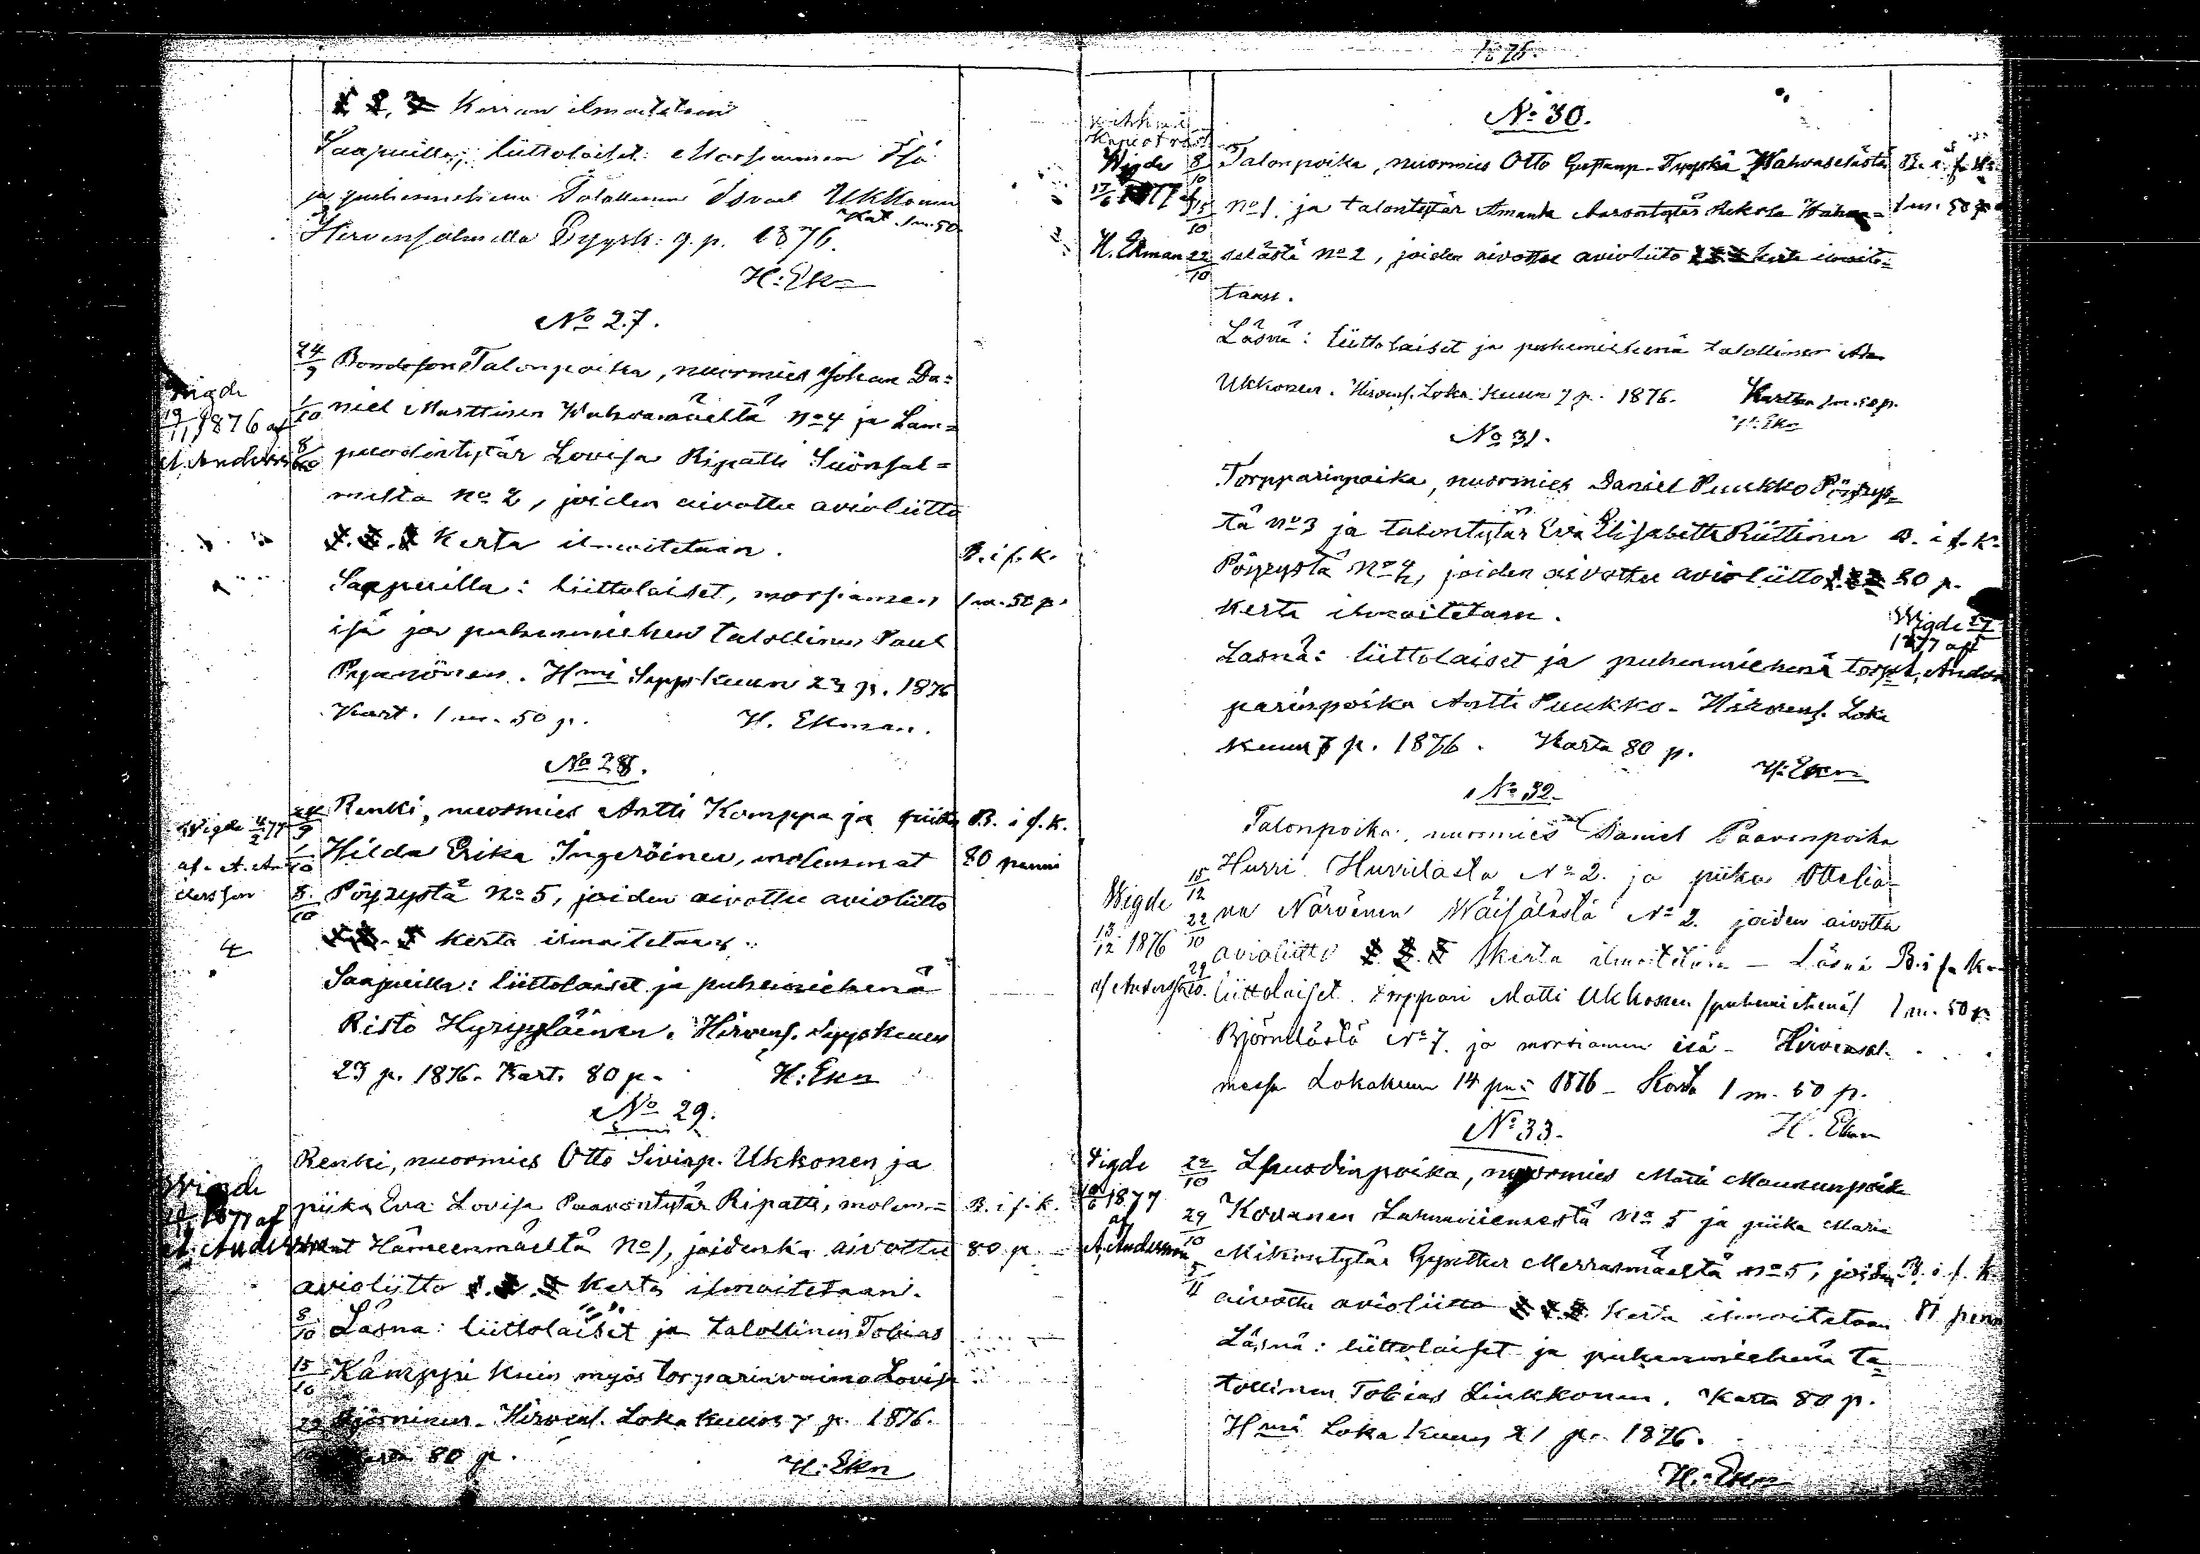 1. 2. 3. Kerran ilmoitetaan
Saapuilla: liittolaiset: Morsiamen Isä
ja puhemiehenä Talollinen Israel Ukkonen
Kart. 1 m. 50
Hirvensalmella Syysk. 9. p. 1876.
H: Ekn
No 27.
24/9 Bondeson Talonpoika, nuormies Johan Da=
1/10 niel Marttinen Wahvamäeltä No 4 ja Lam=
8/10 puodintytär Lovisa Ripatti Suonsal=
melta No 2, joiden aivottu avioliitto
1. 2. 3 Kerta ilmoitetaan.
Saapuilla: liittolaiset, morsiamen
isä ja puhemiehenä talollinen Paul
Hmi Syyskuun 23 p. 1876
Kart. 1 m. 50 p.
H. Ekman.
Wigde
19/11 1876 af
A. Anderss
B. i f. K.
1 m. 50 p.
No 28.
24/9 Renki, nuormies Antti Komppa ja piika
1/10 Hilda Erika Ingeröinen, molemmat
8/10 Pöyrystä No 5, joiden aivottu avioliitto
1. 2. 3 kerta ilmoitetaan.
Saapuilla: liittolaiset ja puhemiehenä
Risto Hyyryläinen. Hirvens. Syyskuun
23 p. 1876. Kart. 80 p.
H: Ekn
Wigde 4/2 77
af A. An
dersson
4
B. i f. k.
80 penni
No 29.
Renki, nuormies Otto Sivinp. Ukkonen ja
piika Eva Lovisa Paavontytär Ripatti, molem=
mat Hämeenmäeltä No 1, joidenka aivottu
avioliitto 1. 2. 3 Kerta ilmoitetaan.
8/10 Läsna: liittolaiset ja talollinen Tobias
15/10 Kämppi kuin myös torparinvaimo Lovisa
22 Björninen. Hirvens. Lokakuun 7 p. 1876.
Karta 80 p.
H: Ekn
Wigde
1877 af
A. Anderss
B. i f. k.
80 p.
1876.
No 30.
Wigde
17/6 1877 af
H. Ekman
8/10 Talonpoika, nuormies Otto Gustanp. Tyyskä Wahvaselästä
15/10 No 1. ja talontytär Amanda Aarontytär Rekola Wahva=
22/10 selästä No 2, joiden aivottu avioliito 1. 2. 3 kerta ilmoite=
taan.
B. i f. K.
1 m. 50 p.
Läsnä: liittolaiset ja puhemiehenä talollinen
Ukkonen. Hirvens. Loka Kuun 7 p. 1876. Kartta 1 m. 50 p.
H: Ekn
No 31.
Torpparinpoika, nuormies Daniel Puukko Pöyrys=
tä No 3 ja talontytär Eva Elisabetta Riittinen
Pöyrystä No 4, joiden aivottu avioliitto 1. 2. 3
kerta ilmoitetaan.
Läsnä: liittolaiset ja puhemiehenä torp=
parinpoika Antti Puukko. Hirvens. Loka
kuun 7 p. 1876. Karta 80 p.
H: Ekn
B. i f. K.
80 p.
Wigde
1877 af
A. Anders
No 32.
Talonpoika, nuormies Daniel Paavonpoika
15/12 Hurri Hurrilasta No 2. ja piika Ottelia=
22/10 na Närvänen Wäisälästä No 2. joiden aivottu
avioliitto 1. 2. 3 Kerta ilmoitetaan – Läsnä
29/10. liittolaiset. torppari Matti Ukkonen /puhemiehenä/
Björnilästä No 7. ja morsiamen isä – Hirvensal=
messa Lokakuun 14 pnä 1876 – Karta 1 m. 50 p.
H. Ekn
Wigde
13/12 1876
af Andersson
B. i f. k.
1 m. 50 p.
No 33.
22/10 Lpuodinpoika, nuormies Matti Maununpoika
29/10 Kovanen Lahnaniemestä No 5 ja piika Maria
5/11 Mikontytär Merrasmäeltä No 5, joiden
aivottu avioliitto 1. 2. 3. Kerta ilmoitetaan
Läsnä: liittolaiset ja puhemiehenä ta=
lollinen Tobias Linkkonen. Karta 80 p.
Hmi Loka kuun 21 p. 1876.
H: Ekn
Wigde
1877
af
A. Andersson
B. i f. k.